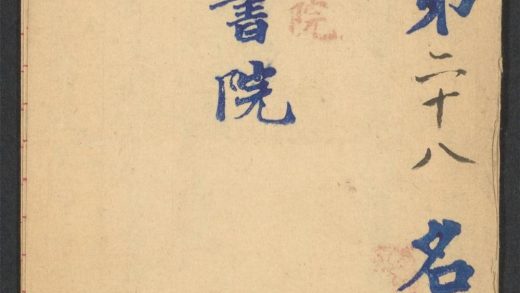 第二十八名
書院
院